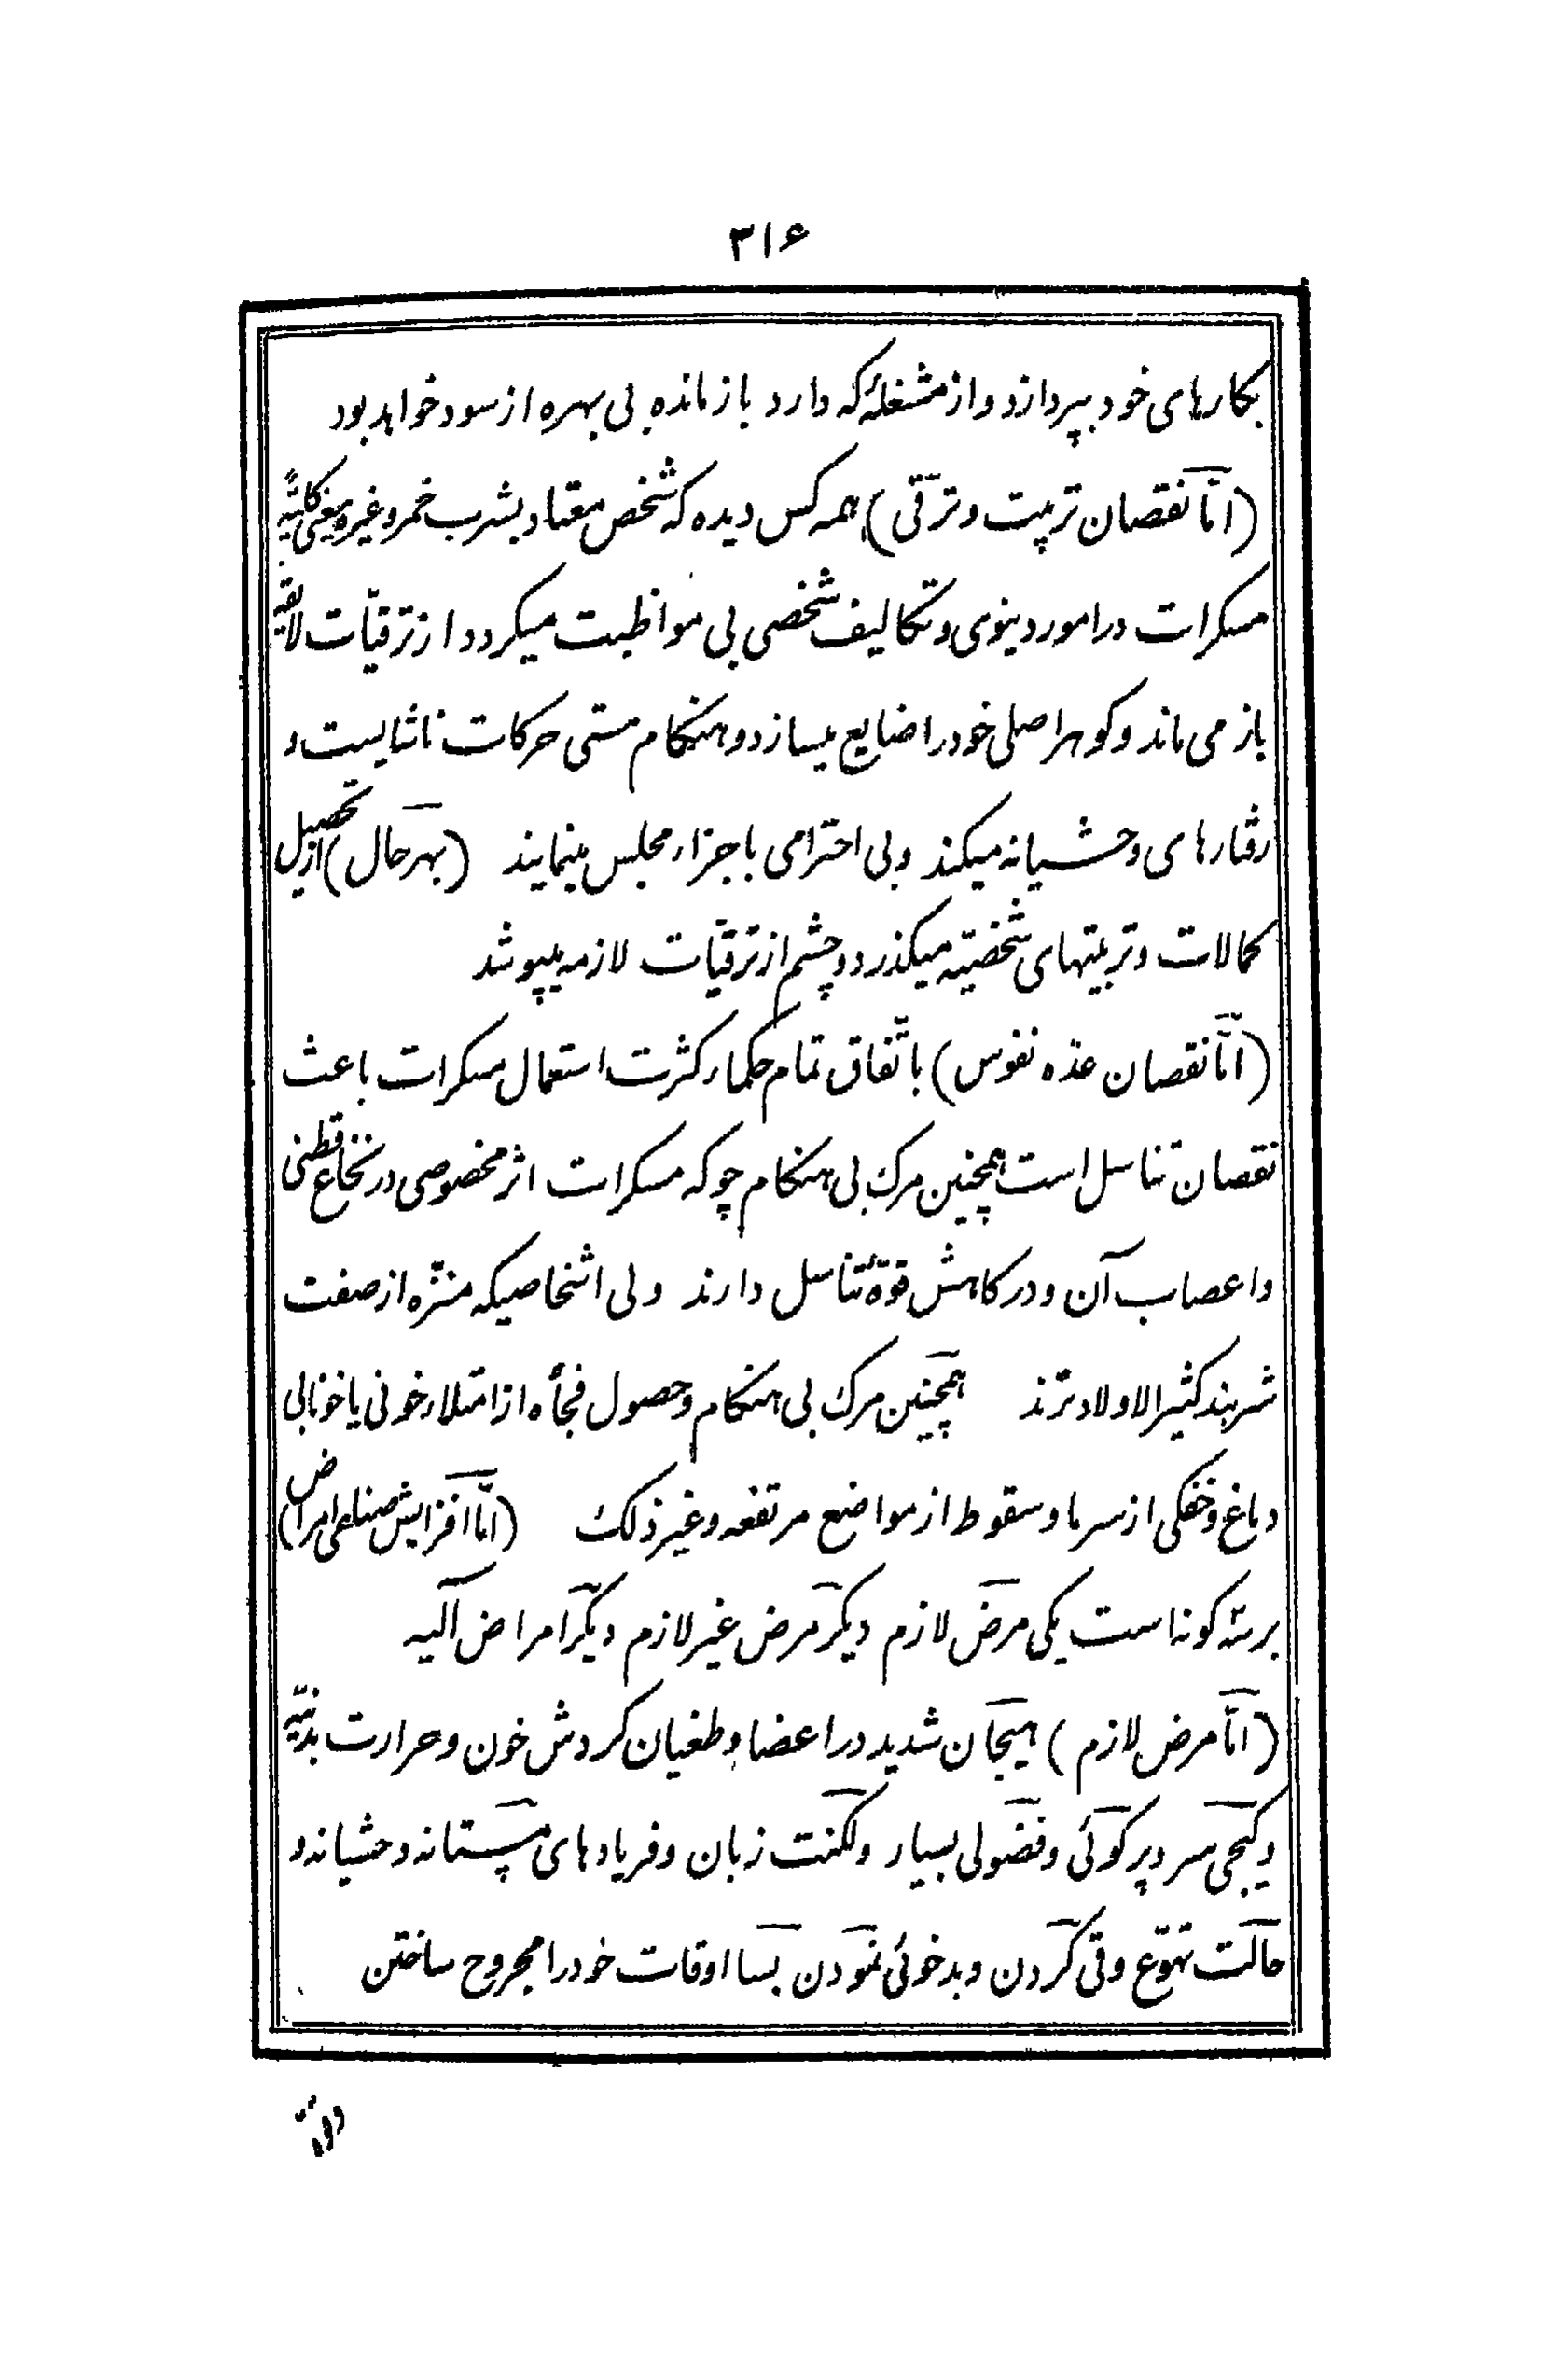 ۳۱۶
بکارهای خود بپردازد و از مشغلهٔ که دارد بازمانده بی بهره از سود خواهد بود
(امّا نقصان تربیت و ترقّی) همه کس دیده که شخص معتاد بشرب خمر و غیره یعنی کلیّهٔ
مسکرات در امور دنیوی و تکالیف شخصی بی مواظبت میگردد از ترقیّات لایقه
باز می ماند و کوهر اصلی خود را ضایع میسازد و هنکام مستی حرکات ناشایست و
رفتارهای وحشیانه میکند و بی احترامی باجزاء مجلس مینمایند (بهرحال) از تحصیل
کمالات و تربیتهای شخصیّه میکذرد و چشم از ترقیّات لازمه میپوشد
(امّا نقصان عده نفوس) باتّفاق تمام حکماء کثرت استعمال مسکرات باعث
نقصان تناسل است همچنین مرک بی هنکام چو که مسکرات اثر مخصوصی در نخاع قطنی
و اعصاب آن و در کاهش قوّهٔ تناسل دارند ولی اشخاصیکه منزّه از صفت
شربند کثیر الاولادترند همچنین مرک بی هنکام و حصول فجأه از امتلاء خونی یا خونابی
دماغ و خفکی از سرما و سقوط از مواضع مرتفعه و غیر ذلک (امّا افزایش صناعی امراض)
بر سه کونه است یکی مرض لازم دیکر مرض غیر لازم دیکر امراض آلیه
(امّا مرض لازم) هیجان شدید در اعضا و طغیان کردش خون و حرارت بدنیّه
و کیجی سر و پرکوئی و فضولی بسیار و لکنت زبان و فریادهای مستانه و حشیانه و
حالت تهوّع و قی کردن و بدخوئی نمودن بسا اوقات خود را مجروح ساختن